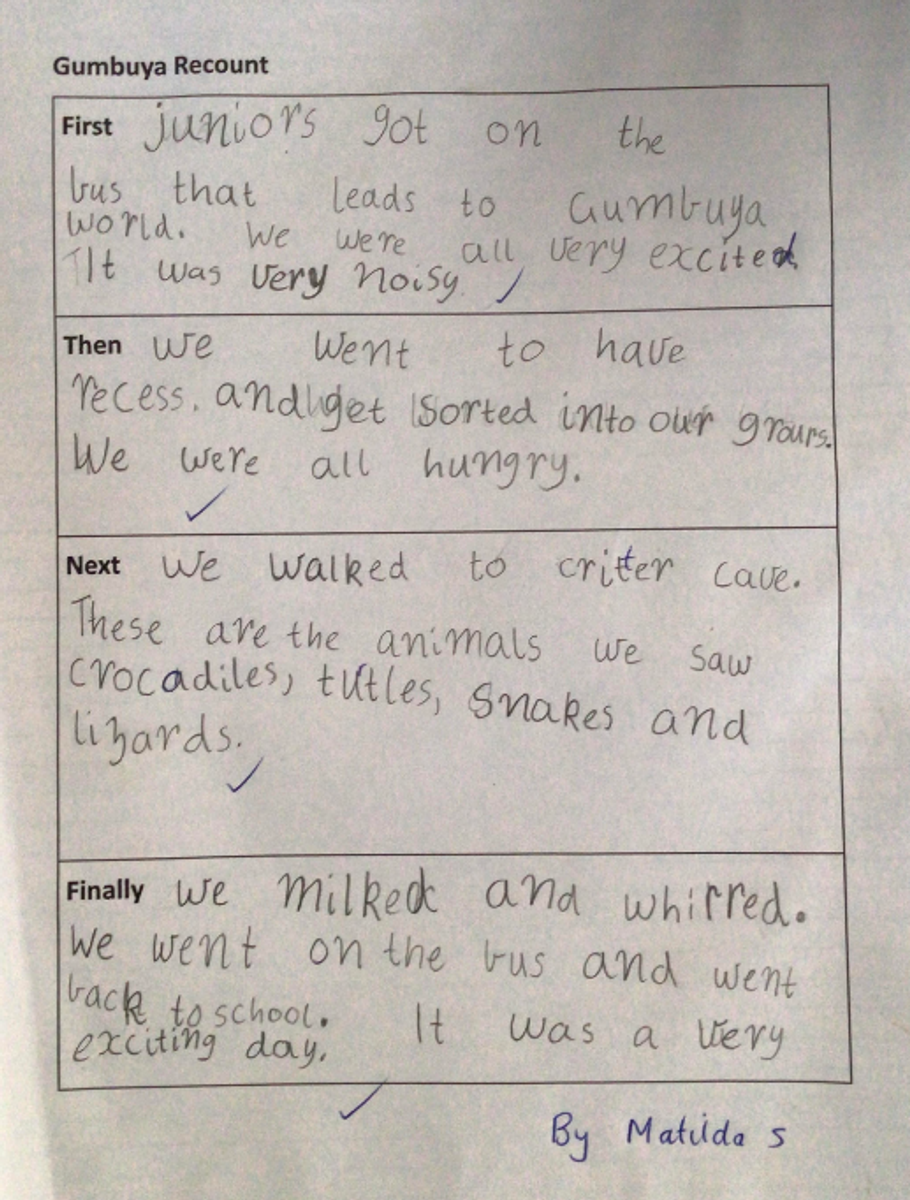 Gumbuya Recount
First juniors got on the
bus that leads to Gumbuya
world. We were all very excited.
It was very noisy.
Then we went to have
recess. and get sorted into our groups.
We were all hungry.
Next we walked to criter cave.
These are the animals we saw
crocadiles, tutles, snakes and
lizards.
Finally we milked and whirred.
We went on the bus and went
back to school. It was a very
exciting day.
By Matilda S